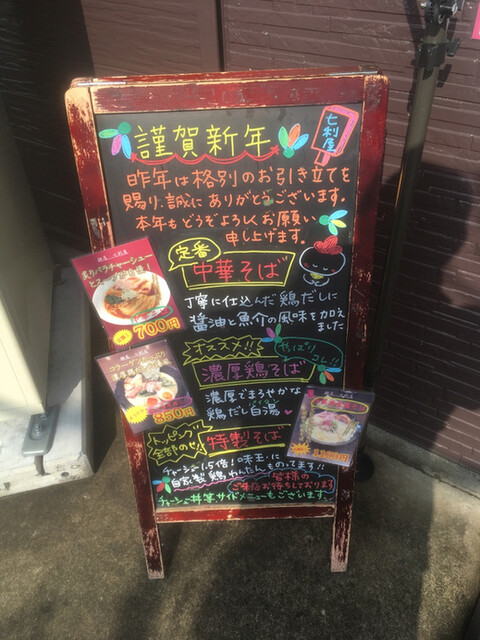 謹賀新年
七利屋
昨年は格別のお引き立てを
賜り、誠にありがとうございます。
本年もどうぞよろしくお願い
申し上げます。
定番
中華そば
丁寧に仕込んだ鶏だしに
醤油と魚介の風味を加え
ました
炙りバラチャーシュー
700円
オススメ!!
やっぱりコレ!!
濃厚鶏そば
濃厚でまろやかな
鶏だし白湯
パイタン
コラーゲンたっぷり
850円
トッピング
全部のせ!
特製そば
チャーシュー1.5倍!の味玉に
自家製鶏わんたんものってます!!
皆様の
ご来店お待ちしております
チャーシュー丼等サイドメニューもございます。